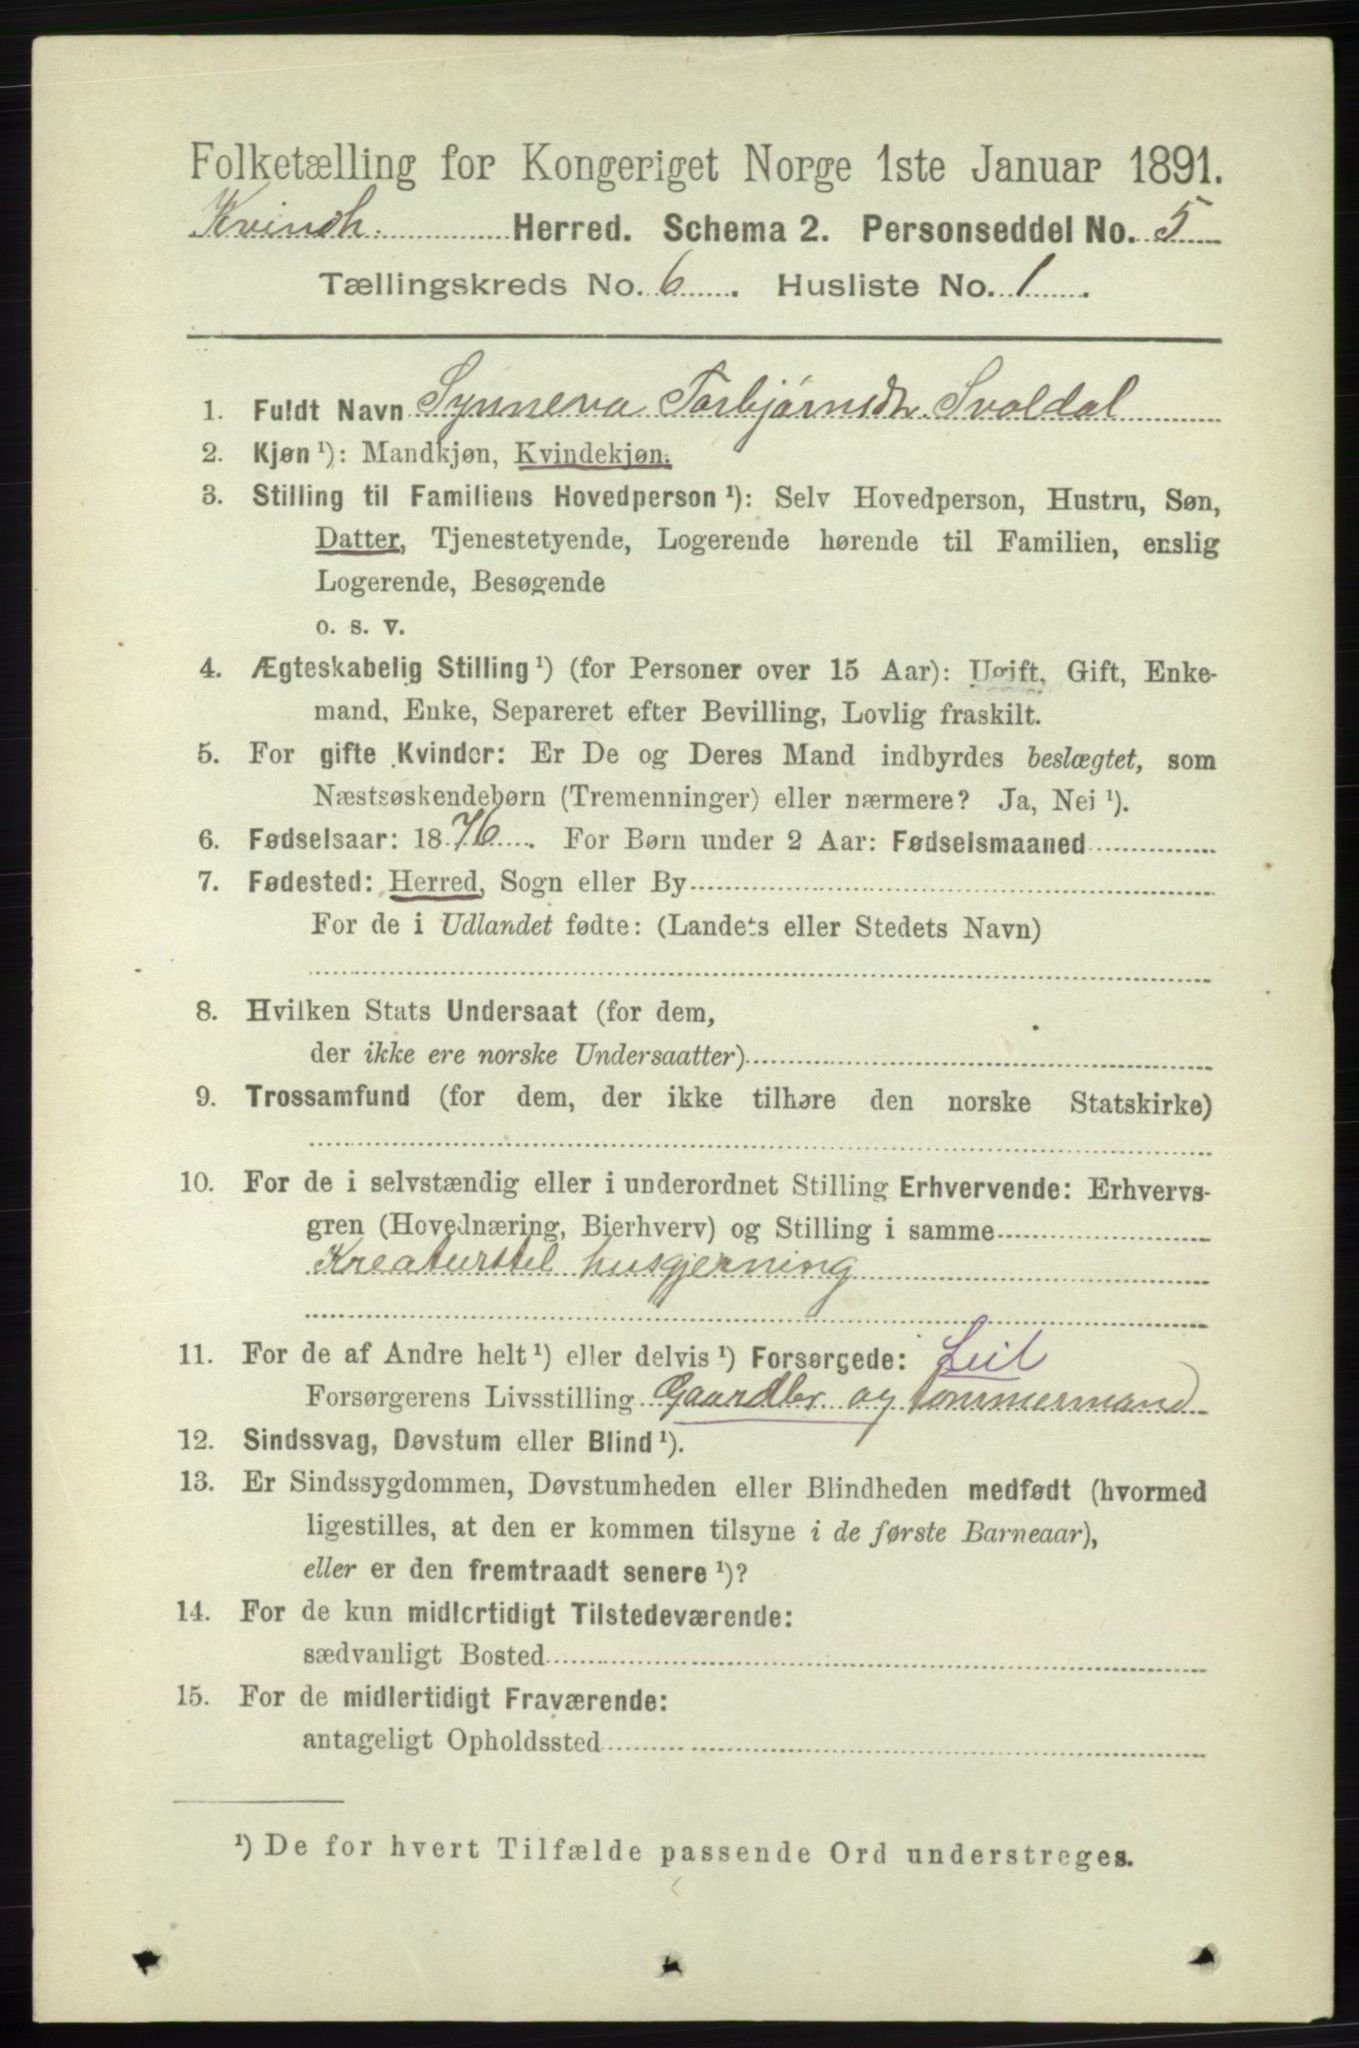 Folketælling for Kongeriget Norge 1ste Januar 1891.
Kvindh. Herred. Schema 2. Personseddel No. 5
Tællingskreds No. 6. Husliste No. 1.
1. Fuldt Navn Synneva Torbjørnsdr. Svaldal
2. Kjøn ¹): Mandkjøn, Kvindekjøn.
3. Stilling til Familiens Hovedperson ¹): Selv Hovedperson, Hustru, Søn,
Datter, Tjenestetyende, Logerende hørende til Familien, enslig
Logerende, Besøgende
o. s. v.
4. Ægteskabelig Stilling ¹) (for Personer over 15 Aar): Ugift, Gift, Enke-
mand, Enke, Separeret efter Bevilling, Lovlig fraskilt.
5. For gifte Kvinder: Er De og Deres Mand indbyrdes beslægtet, som
Næstsøskendebørn (Tremenninger) eller nærmere? Ja, Nei ¹).
6. Fødselsaar: 1876. For Børn under 2 Aar: Fødselsmaaned
7. Fødested: Herred, Sogn eller By
For de i Udlandet fødte: (Landets eller Stedets Navn)
8. Hvilken Stats Undersaat (for dem,
der ikke ere norske Undersaatter)
9. Trossamfund (for dem, der ikke tilhøre den norske Statskirke)
10. For de i selvstændig eller i underordnet Stilling Erhvervende: Erhvervs-
gren (Hovednæring, Bierhverv) og Stilling i samme
Kreaturstel husgjerning
11. For de af Andre helt ¹) eller delvis ¹) Forsørgede: Leil
Forsørgerens Livsstilling Gaardbr. og tømmermand
12. Sindssvag, Døvstum eller Blind ¹).
13. Er Sindssygdommen, Døvstumheden eller Blindheden medfødt (hvormed
ligestilles, at den er kommen tilsyne i de første Barneaar),
eller er den fremtraadt senere ¹)?
14. For de kun midlertidigt Tilstedeværende:
sædvanligt Bosted
15. For de midlertidigt Fraværende:
antageligt Opholdssted
¹) De for hvert Tilfælde passende Ord understreges.